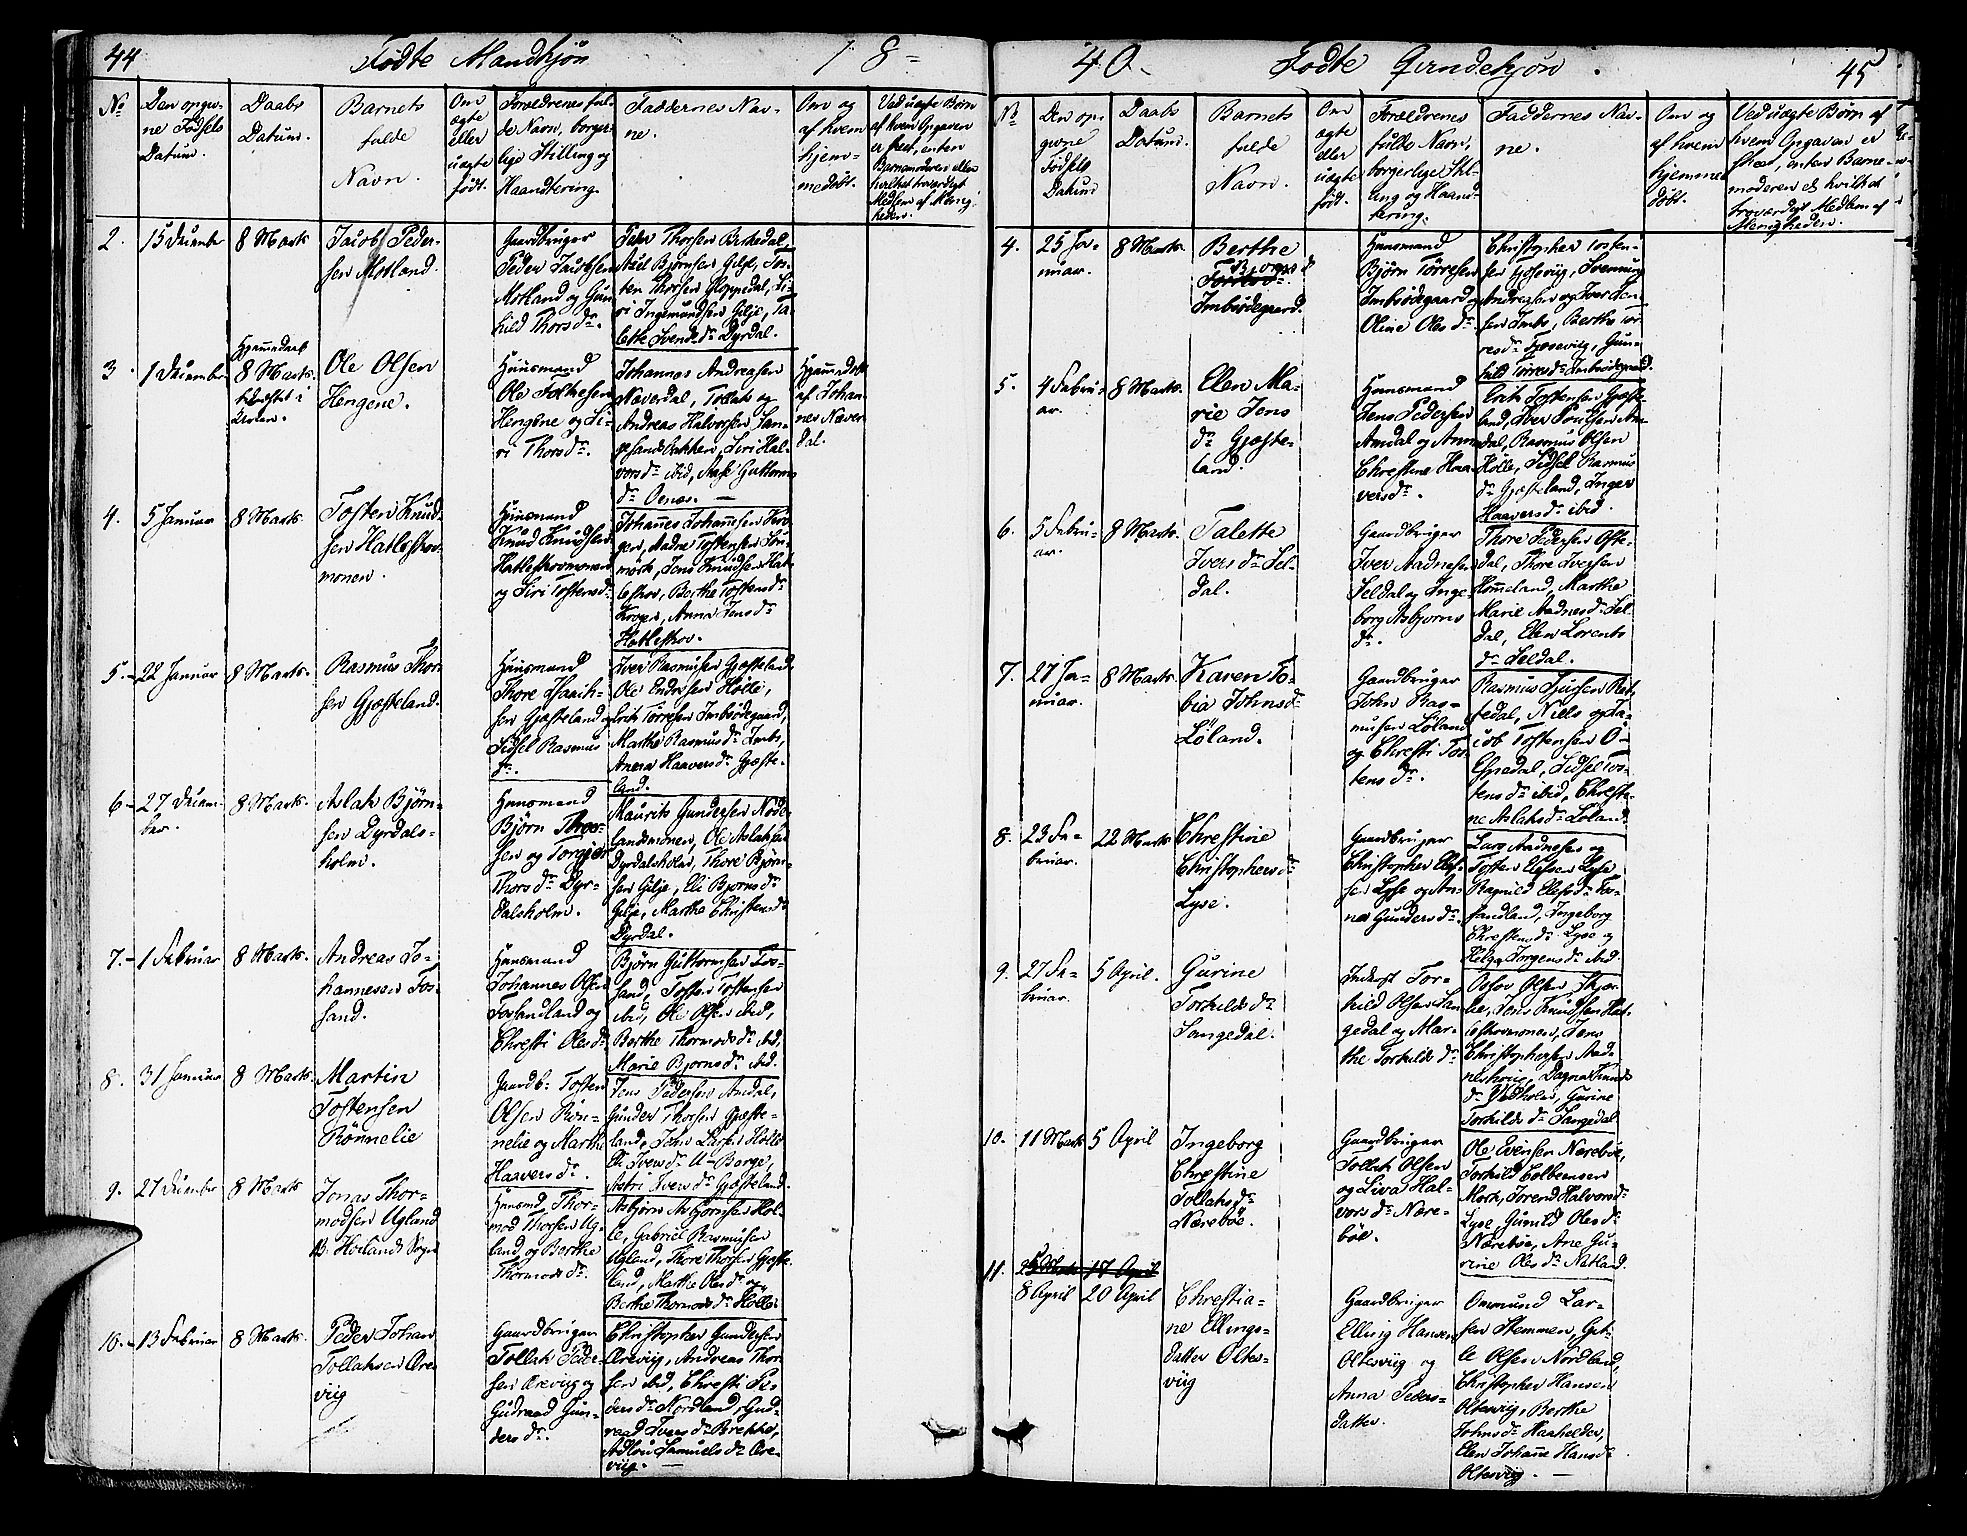 44
Fødte Mandkjøn
18=
No
Den opgiv-
ne Fødsels
Datum.
Daabs
Datum.
Barnets
fulde
Navn.
Om
ægte
eller
uægte
født.
Forældrenes ful-
de Navn, borger-
lige Stilling og
Haandtering.
Faddernes Nav-
ne.
Om og
af hvem
hjem-
medøbt.
Ved uægte Børn
af hvem Opgaven
er skeet, enten
Barnemoderen eller
hvilket troværdigt
Medlem af Menig-
heden.
2.
15 December
8 Marts
Jacob Peder-
sen Motland.
Gaardbruger
Peder Jacobsen
Motland og Gun-
hild Thorsdr.
Peder Thorsen Birkedal,
Axel Bjørnsen Gilje, Tos-
ten Thorsen Gloppedal, Si-
ri Ingemundsen Gilje, Ta-
lette Svendsdr. Dyrdal.
3.
1 December
Hjemmedøbt
8 Marts
i
Kirken.
Ole Olsen
Hengene.
Huusmand
Ole Tollefsen
Hengene og Si-
ri Thorsdr.
Johannes Andreasen
Næverdal, Tollak og
Andreas Halvorsen San-
gesandsbakken, Siri Hal-
vorsdr. ibid, Aase Guttorms
dr. Oenæs. —
Hjemmedøbt
af Johan-
nes Næver-
dal.
4.
5 Januar
8 Marts
Tosten Knud-
sen Hatleskov-
monen.
Huusmand
Knud Knudsen
Hatleskovmonen
og Siri Tostensdr.
Johannes Johannesen Kro-
gen, Andre Tostensen Søn-
mørk, Jens Knudsen Hat-
leskov, Berthe Tostensdr.
Krogen, Anna Jensdr.
Hatleskov.
5.
22 Januar
8 Marts
Rasmus Thor-
sen Gjæsteland.
Huusmand
Thore Isach-
sen Gjæsteland og
Sidsel Rasmus
dr.
Iver Rasmusen Gjæsteland.
Ole Endresen Hølle,
Erik Tørresen Imbsødegaard,
Marthe Rasmusdr. Imbs,
Anna Haaversdr. Gjæste-
land.
6
27 Decem-
ber.
8 Marts.
Aslak Bjørn-
sen Dyrdals-
holm.
Huusmand
Bjørn Thor-
sen og Torgjer
Thorsdr. Dyr-
dalsholm.
Maurits Gundersen Nøde-
landsmonen, Ole Aslaksen
Dyrdalsholm, Thore Bjørn-
sen Gilje, Eli Bjørnsdr.
Gilje, Marthe Christensdr.
Dyrdal.
7.
1 Februar
8 Marts.
Andreas Jo-
hannesen Fos-
sand.
Huusmand
Johannes Olsen
Foslandland og
Christi Olesdr.
Bjørn Guttormsen Fos-
sand, Tosten Tostensen
ibid, Ole Olsen ibid,
Berthe Thormodsdr. ibid,
Marie Bjørnsdr. ibid.
8.
31 Januar
8 Marts.
Martin
Tostensen
Rønnelie
Gaardb. Tosten
Olsen Røn-
nelie og Marthe
Haaversdr.
Jens Pedersen Amdal,
Gunder Thorsen Gjæste-
land, John Larsen Hølle
Eli Iversdr. U-Berge,
Astri Iversdr. Gjæsteland.
9.
27 December
8 Marts
Jonas Thor-
modsen Ugland
Høilands Sogn
Huusmd. Thor-
mod Thorsen Ug-
land og Berthe
Thormodsdr.
Asbjørn Asbjørnsen Høl-
le, Gabriel Rasmusen
Ugland, Thore Thorsen Gjæste-
land, Marthe Olesdr. og
Berthe Thormodsdr. Hølle.
10.
13 Februar
8 Marts.
Peder Johan
Tollaksen Øre-
viig
Gaardbruger
Tollak Peder-
sen Øreviig og
Gudraad Gun-
dersdr.
Christopher Gundersen
Øreviig, Andreas Thor-
sen ibid, Christi Pe-
dersdr. Nordland, Gud-
raad Iversdr. Brekke,
Adlou Samuelsdr. Øre-
viig. —
40.
Fødte Qvindekjøn.
45
No
Den op-
givne
Fødsels
Datum
Daabs
Datum.
Barnets
fulde
Navn.
Om
ægte
eller
uægte
født.
Forældrenes
fulde Navn,
borgerlige Stil-
ling og Haand-
tering.
Faddernes Nav-
ne.
Om og
af hvem
hjemme
døbt.
Ved uægte Børn af
hvem Opgaven er
skeed, enten Barne-
moderen el. hvilket
troværdigt Medlem af
Menigheden.
4.
25 Ja-
nuar.
8 Marts.
Berthe
Bjørnsd
Imbsødegaard.
Huusmand
Bjørn Tørresen
Imbsødegaard og
Oline Olesdr.
Christopher Tosten-
sen Fossviig, Svennung
Andreasen og Iver Jen-
sen Imbs, Berthe Tør-
resdr. Fosseviig, Gun-
hild Tørresdr. Imbsødegaard.
5.
4 Febru-
ar.
8 Marts.
Elen Ma-
rie Jens
dr. Gjæste-
land.
Huusmand
Jens Pedersen
Amdal og Anna
Christine Haa-
versdr.
Erik Tostensen Gjæste-
land, Iver Poulsen Am-
dal, Rasmus Olsen
Hølle, Sidsel Rasmus
dr. Gjæsteland, Inger
Haaversdr. ibid.
6.
5 Febru-
ar.
8 Marts.
Talette
Iversdr. Sel-
dal.
Gaardbruger
Iver Aadnesen
Seldal og Inge-
borg Asbjørns
dr.
Thore Pedersen Ofte-
dal, Thore Iversen
Hommeland, Marthe
Marie Aadnesdr. Sel-
dal, Elen Lorents
dr. Seldal.
7.
27 Ja-
nuar.
8 Marts
Karen To-
bia Johnsdr.
Løland.
Gaardbruger
John Ras-
musen Løland
og Christi Tos-
tensdr.
Rasmus Sjursen Rett-
tedal, Niels og Ja-
cob Tostensen O-
spedal, Sidsel Tos-
tensdr. ibid, Christi-
ne Aslaksdr. Løland.
8.
23 Fe-
bruar.
22 Marts
Christine
Christophersdr.
Lyse.
Gaardbruger
Christopher Elef-
sen Lyse og An-
ne Gundersdr.
Lars Aadnesen og
Tosten Elefsen Lyse
Ragnild Elefsdr. Fos-
sandland, Ingeborg
Christensdr. Lyse og
Helga Jørgensdr. ibid.
9.
27 Fe-
bruar.
5 April.
Gurine
Torkildsdr.
Sangedal.
Inderst Tor-
kild Olsen San-
gedal og Mar-
the Torkildsdr.
Osfov Olsen Skjør-
lie, Jens Knudsen Hat-
leskovmonen, Jens
Christophersen Aad-
neskovg, Dagna Knuds
dr. Vidholm, Gurine
Torkildsdr. Sangedal
10.
11 Marts
5 April
Ingeborg
Christine
Tollaksdr.
Nærebøe.
Gaardbruger
Tollak Olsen
og Liva Hal-
vorsdr. Nære-
bøe.
Ole Evensen Nærebøe,
Torkild Colbensen
Mork, Jørend Halvorsdr.
Lyse, Gunild Olesdr.
Nærebøe, Ane Gu-
rine Olesdr. Natland.
11.
25 Marts
17 April
8 April
20 April
Christia-
ne Ellings-
datter Oltes-
viig
Gaardbruger
Elling Hansen
Oltesviig og
Anna Peders-
datter.
Ommund Lar-
sen Stemmen, Get-
le Olsen Nordland,
Christopher Hansen
Oltesviig, Berthe
Johnsdr. Haahelder,
Elen Johanne Hansdr.
Oltesviig. —